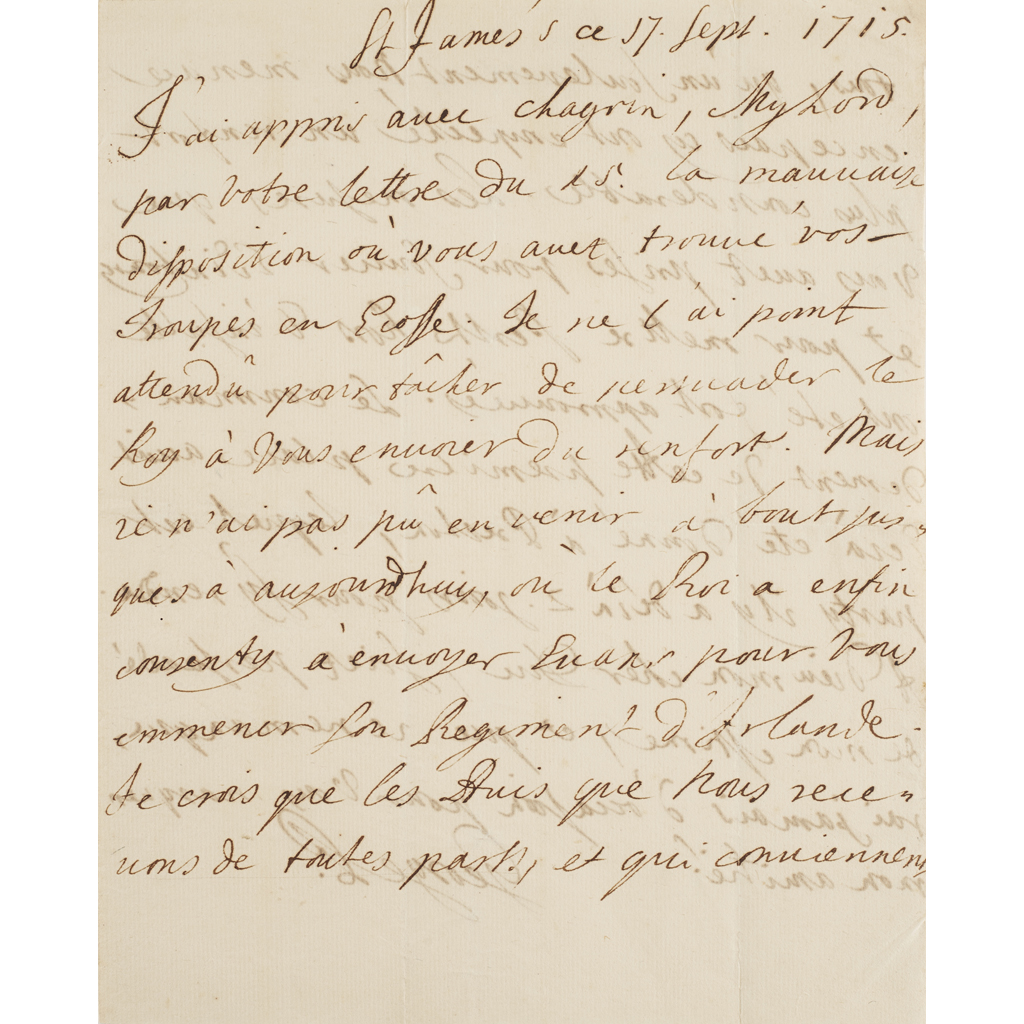 St James's ce 17. Sept. 1715.
J'ai appris avec chagrin, Mylord,
par votre lettre du 15. la mauvaise
disposition où vous avez trouvé vos
Troupes en Ecosse. Je ne l'ai point
attendû pour tâcher de persuader le
Roy à Vous envoier du renfort. Mais
je n'ai pas pû en venir à bout jus=
ques à aujourdhuy, où le Roi a enfin
consenty à envoyer Evans pour Vous
emmener son Regiment d'Irlande.
Je crois que les Avis que Nous rece=
vons de toutes parts, et qui conviennent